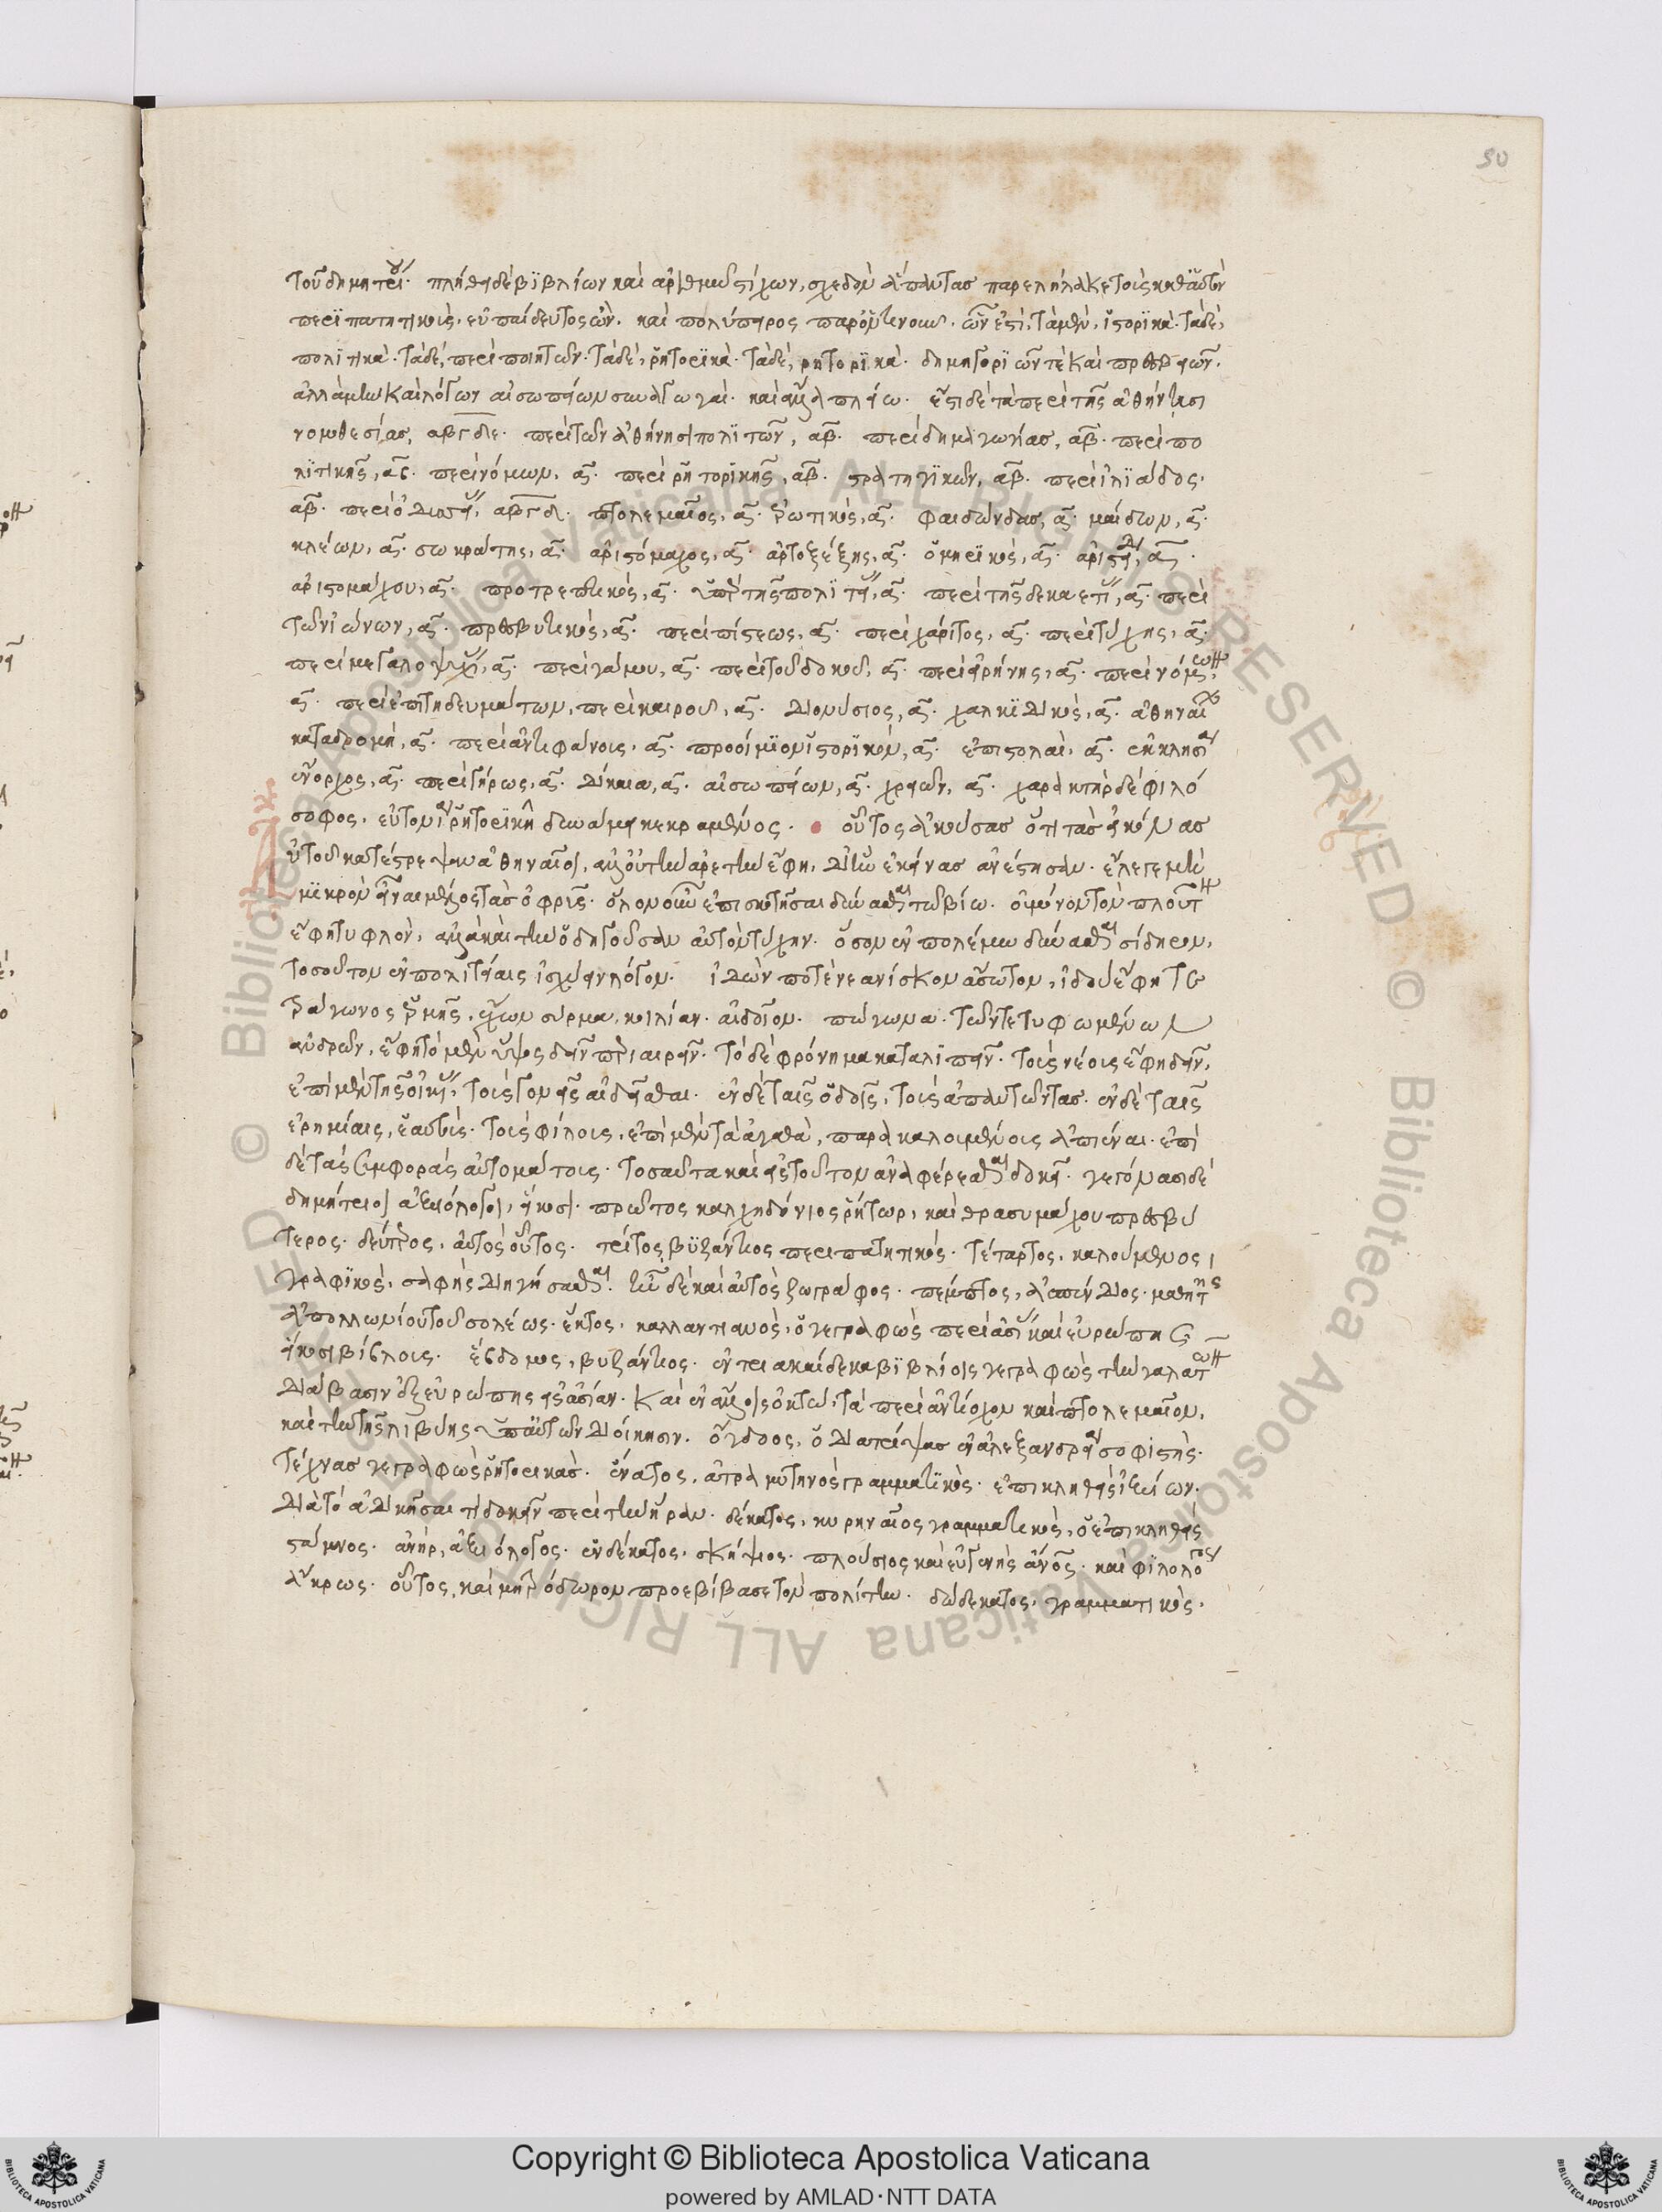 90
τοῦ δημητρίου. πλήθει δὲ βϊβλίων καὶ ἀριθμῶ στίχων, σχεδὸν ἅπαντας παρεληλακε τοὺς καθ' αὑτὸν
περϊπατητικοὺς. εὐπαίδευτος ὢν. καὶ πολύπειρος παρ' ὁντινοῦν. ὧν ἐστὶ, τὰ μὲν, ἱστορϊκὰ. τὰ δὲ,
πολϊτικὰ. τὰ δὲ, περὶ ποιητῶν. τὰ δὲ, ῥητορϊκὰ. τὰ δὲ, ρητορϊκὰ. δημηγορϊῶν τὲ καὶ πρεσβειῶν.
ἀλλὰ μὴν καὶ λόγων αἰσωπείων συναγωγαὶ. καὶ ἄλλα πλείω. ἔστι δὲ τὰ περὶ τῆς ἀθήνησι
νομοθεσίας, αβγδε. περὶ τῶν ἀθήνησι πολϊτῶν, αβ. περὶ δημαγωγίας, αβ. περὶ πο
λϊτικῆς, ας. περὶ νόμων, α. περὶ ρητορϊκῆς, αβ. στρατηγϊκῶν, αβ. περὶ ἰλϊάδος,
αβ. περὶ ὀδυσσείας, αβγδ. πτολεμαῖος, α. ἐρωτικὸς, α. φαιδώνδας, α. μαίδων, α.
κλέων, α. σωκράτης, α. ἀριστόμαχος, α. ἀρτοξέρξης, α. ὁμηρϊκὸς, α. ἀριστείδης, α.
ἀριστομάχου, α. προτρεπτικὸς, α. ὑπὲρ τῆς πολϊτείας, α. περὶ τῆς δεκαετίας, α. περὶ
τῶν ἰώνων, α. πρεσβυτικὸς, α. περὶ πίστεως, α. περὶ χάριτος, α. περὶ τύχης, α.
περὶ μεγαλοψυχίας, α. περὶ γάμου, α. περὶ τοῦ δοκοῦ, α. περὶ εἰρήνης, α. περὶ νόμων,
α. περὶ ἐπιτηδευμάτων, περὶ καιροῦ, α. διονύσιος, α. χαλκϊδικὸς, α. ἀθηναίων
καταδρομὴ, α. περὶ ἀντιφάνοις, α. προοίμϊον ἱστορϊκὸν, α. ἐπιστολαὶ, α. ἐκκλησία
ἔνορκος, α. περὶ γήρως, α. δίκαια, α. αἰσωπείων, α. χρειῶν, α. χαρακτὴρ δὲ φιλό
σοφος, εὐτονία ῥητορϊκῆ δυνάμει κεκραμένος. οὗτος ἀκούσας ὅτι τὰς εἰκόνας
αὐτοῦ κατέστρεψαν ἀθηναῖοι, ἀλλ' οὐ τὴν ἀρετὴν ἔφη, δι' ἣν ἐκείνας ἀνέστησαν. ἔλεγε μὴ
μϊκρὸν εἶναι μέρος τὰς ὀφρῦς. ὅλον οὖν ἐπισκοτῆσαι δύνασθαι τῶ βίω. οὐ μόνον τὸν πλοῦτον
ἔφη τυφλὸν, ἀλλὰ καὶ τὴν ὁδηγοῦσαν αὐτὸν τύχην. ὅσον ἐν πολέμω δύνασθαι σίδηρον,
τοσοῦτον ἐν πολιτείαις ἰσχύειν λόγον. ἰδών ποτὲ νεανίσκον ἄσωτον, ἰδοὺ ἔφη τε
τράγωνος ἑρμῆς, ἔχων σύρμα, κοιλίαν. αἰδοῖον. πώγωνα. τῶν τετυφωμένων
ἀνδρῶν, ἔφη τὸ μὲν ὕψος δεῖν περιαιρεῖν. τὸ δὲ φρόνημα καταλϊπεῖν. τοὺς νέοις ἔφη δεῖν,
ἐπὶ μὲν τῆς οἰκίας, τοὺς γονεῖς αἰδεῖσθαι. ἐν δὲ ταῖς ὁδοῖς, τοὺς ἀπαντῶντας. ἐν δὲ ταις
ἐρημίαις, ἑαυτοὺς. τοὺς φίλοις, ἐπὶ μὲν τὰ ἀγαθὰ, παρακαλοιμένοις ἀπιέναι. ἐπὶ
δὲ τὰς συμφορὰς αὐτομάτοις. τοσαῦτα καὶ εἰς τοῦτον ἀναφέρεσθαι δοκεῖ. γεγόνασι δὲ
δημήτριοι ἀξιόλογοι, εἴκοσι. πρῶτος καλχηδόνιος ῥήτωρ, καὶ θρασυμάχου πρεσβύ
τερος. δεύτερος, αὐτὸς οὗτος. τρίτος βϋζάντιος περιπατητικὸς. τέταρτος, καλούμενος
γραφϊκὸς, σαφὴς διηγήσασθαι. ἦν δὲ καὶ αὐτὸς ζωγράφος. πέμπτος, ἀσπένδιος. μαθητὴς
ἀπολλωνίου τοῦ σολέως. ἕκτος, καλλαντιανὸς, ὁ γεγραφὼς περὶ ἀσίας καὶ εὐρώπης
εἴκοσι βίβλοις. ἕβδομος, βυζάντιος. ἐν τρισκαίδεκα βϊβλίοις γεγραφὼς τὴν γαλατῶν
διάβασιν ἐξ εὐρώπης εἰς ἀσίαν. καὶ ἐν ἄλλοις ὀκτὼ, τὰ περὶ ἀντίοχον καὶ πτολεμαῖον,
καὶ τὴν τῆς λιβύης ὑπ' αὐτῶν διοίκησιν. ὄγδοος, ὁ διατρίψας ἐν ἀλεξανδρεία σοφϊστὴς.
τέχνας γεγραφὼς ῥητορικὰς. ἔνατος, ἀτραμυτηνὸς γραμματϊκὸς. ἐπικληθεὶς ἰξίων.
διὰ τὸ ἀδικῆσαι τὶ δοκεῖν περὶ τὴν ἥραν. δέκατος, κυρηναῖος γραμματικὸς, ὁ ἐπικληθεὶς
στάμνος. ἀνὴρ, ἀξιόλογος. ἑνδέκατος, σκήψιος. πλούσιος καὶ εὐγενὴς ἄνος. καὶ φϊλολόγος
ἄκρως. οὗτος, καὶ μητρόδωρον προεβίβασε τὸν πολίτην. δωδέκατος, γραμματικὸς.
Copyright © Biblioteca Apostolica Vaticana
powered by AMLAD·NTT DATA